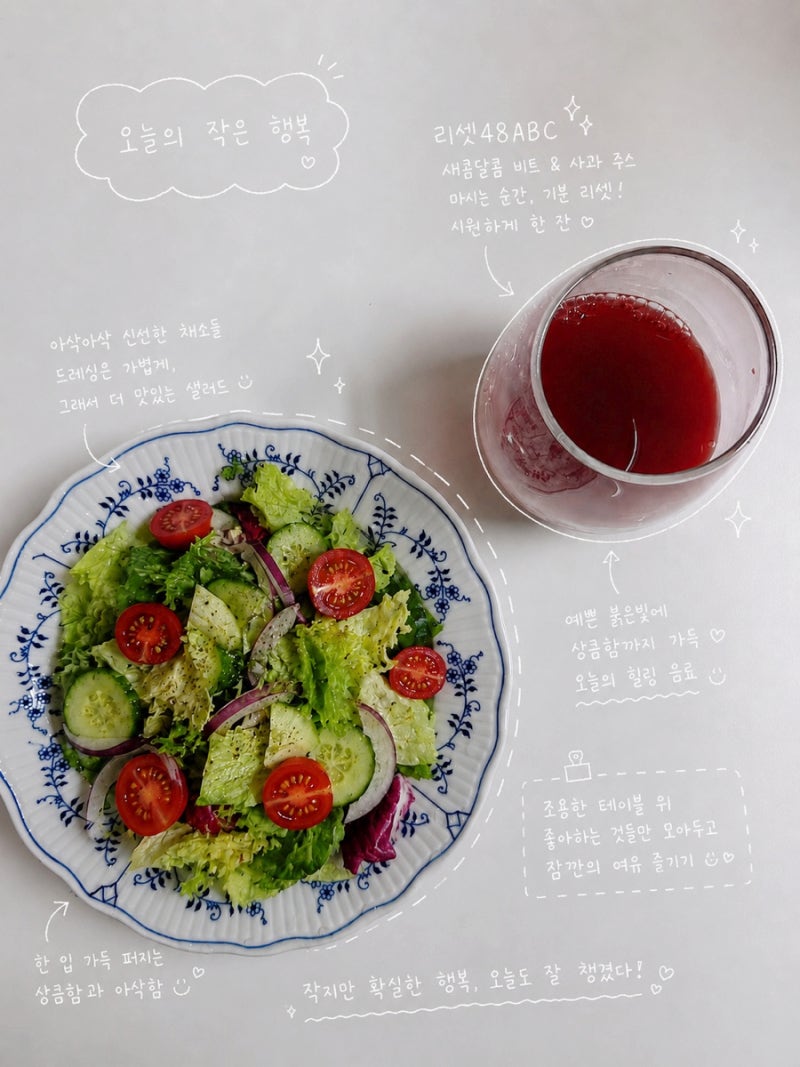 오늘의 작은 행복
리셋48ABC
새콤달콤 비트 & 사과 주스
마시는 순간, 기분 리셋!
시원하게 한 잔
아삭아삭 신선한 채소들
드레싱은 가볍게,
그래서 더 맛있는 샐러드
예쁜 붉은빛에
상큼함까지 가득
오늘의 힐링 음료
조용한 테이블 위
좋아하는 것들만 모아두고
잠깐의 여유 즐기기
한 입 가득 퍼지는
상큼함과 아삭함
작지만 확실한 행복, 오늘도 잘 챙겼다!